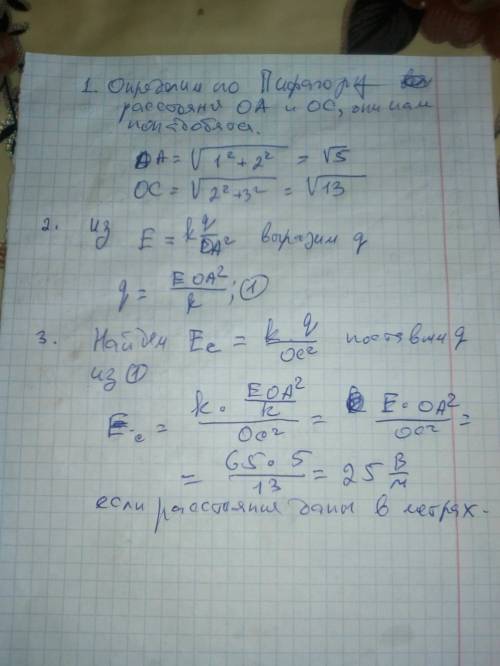 1. Определим по Пифагору
расстояния ОА и ОС, они нам
понадобятся.
ОА = √(1² + 2²) = √5
ОС = √(2² + 3²) = √13
2. из E = k q/OA² выразим q
q = E OA²/k ; ①
3. Найдем Ec = k q/OC² поставим q
из ①
Ec = (k · E OA²/k)/OC² = E · OA²/OC² =
= 65 · 5/13 = 25 В/м
если расстояния даны в метрах.